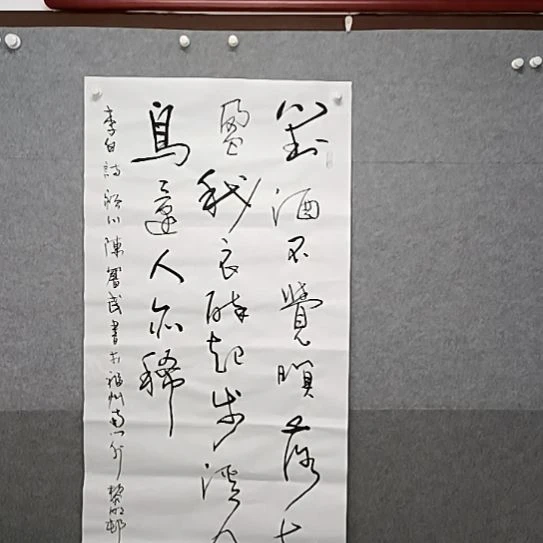 對酒不覺暝落花
盈我衣醉起步溪月
鳥還人亦稀
李白詩 潁川陳奮武書於福州南門外 黎明邨